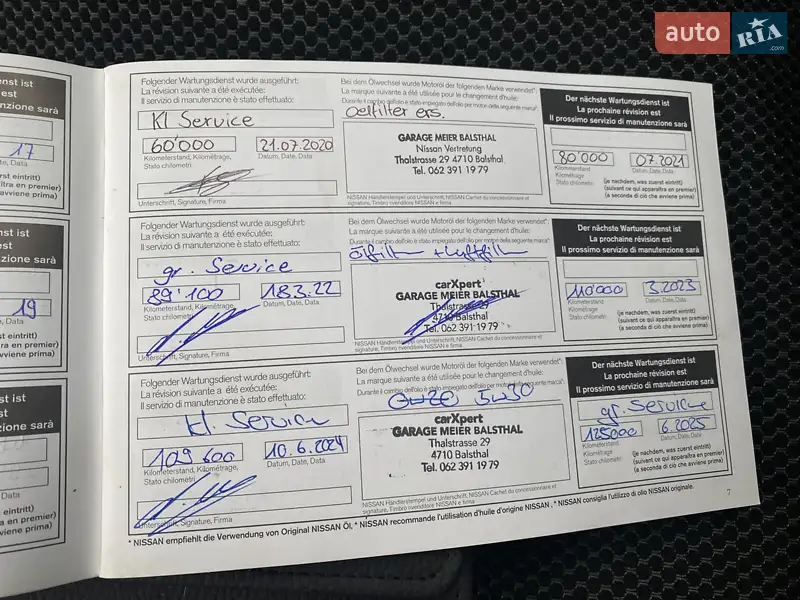 auto RIA .com
nst ist
est
zione sarà
17
te, Data
eintritt)
aîtra en premier)
avviene prima)
nst ist
est
zione sarà
19
, Data
eintritt)
aîtra en premier)
avviene prima)
nst ist
st
one sarà
Data
eintritt)
a en premier)
viene prima)
Folgender Wartungsdienst wurde ausgeführt:
La révision suivante a été exécutée:
Il servizio di manutenzione è stato effettuato:
Kl Service
60'000 21.07.2020
Kilometerstand, Kilométrage, Datum, Date, Data
Stato chilometri
Unterschrift, Signature, Firma
Bei dem Ölwechsel wurde Motoröl der folgenden Marke verwendet*:
La marque suivante a été utilisée pour le changement d'huile:
Durante il cambio dell'olio è stato impiegato olio per motori della seguente marca*:
Oelfilter ers.
GARAGE MEIER BALSTHAL
Nissan Vertretung
Thalstrasse 29 4710 Balsthal
Tel. 062 391 19 79
NISSAN Händlerstempel und Unterschrift, NISSAN Cachet du concessionnaire et
signature, Timbro rivenditore NISSAN e firma
Der nächste Wartungsdienst ist
La prochaine révision est
Il prossimo servizio di manutenzione sarà
80'000 07.2021
Kilometerstand Datum, Date, Data
Kilométrage
Stato chilometri
(je nachdem, was zuerst eintritt)
(suivant ce qui apparaîtra en premier)
(a seconda di ciò che avviene prima)
Folgender Wartungsdienst wurde ausgeführt:
La révision suivante a été exécutée:
Il servizio di manutenzione è stato effettuato:
gr. Service
89'100 18.3.22
Kilometerstand, Kilométrage, Datum, Date, Data
Stato chilometri
Unterschrift, Signature, Firma
Bei dem Ölwechsel wurde Motoröl der folgenden Marke verwendet*:
La marque suivante a été utilisée pour le changement d'huile:
Durante il cambio dell'olio è stato impiegato olio per motori della seguente marca*:
carXpert
GARAGE MEIER BALSTHAL
Thalstrasse 29
4710 Balsthal
Tel. 062 391 19 79
NISSAN Händlerstempel und Unterschrift, NISSAN Cachet du concessionnaire et
signature, Timbro rivenditore NISSAN e firma
Der nächste Wartungsdienst ist
La prochaine révision est
Il prossimo servizio di manutenzione sarà
110'000 3.2023
Kilometerstand Datum, Date, Data
Kilométrage
Stato chilometri
(je nachdem, was zuerst eintritt)
(suivant ce qui apparaîtra en premier)
(a seconda di ciò che avviene prima)
Folgender Wartungsdienst wurde ausgeführt:
La révision suivante a été exécutée:
Il servizio di manutenzione è stato effettuato:
kl. Service
109'600 10.6.2024
Kilometerstand, Kilométrage, Datum, Date, Data
Stato chilometri
Unterschrift, Signature, Firma
Bei dem Ölwechsel wurde Motoröl der folgenden Marke verwendet*:
La marque suivante a été utilisée pour le changement d'huile:
Durante il cambio dell'olio è stato impiegato olio per motori della seguente marca*:
5W30
carXpert
GARAGE MEIER BALSTHAL
Thalstrasse 29
4710 Balsthal
Tel. 062 391 19 79
NISSAN Händlerstempel und Unterschrift, NISSAN Cachet du concessionnaire et
signature, Timbro rivenditore NISSAN e firma
Der nächste Wartungsdienst ist
La prochaine révision est
Il prossimo servizio di manutenzione sarà
gr. Service
125000 6.2025
Kilometerstand Datum, Date, Data
Kilométrage
Stato chilometri
(je nachdem, was zuerst eintritt)
(suivant ce qui apparaîtra en premier)
(a seconda di ciò che avviene prima)
* NISSAN empfiehlt die Verwendung von Original NISSAN Öl, * NISSAN recommande l'utilisation d'huile d'origine NISSAN , * NISSAN consiglia l'utilizzo di olio NISSAN originale.
7